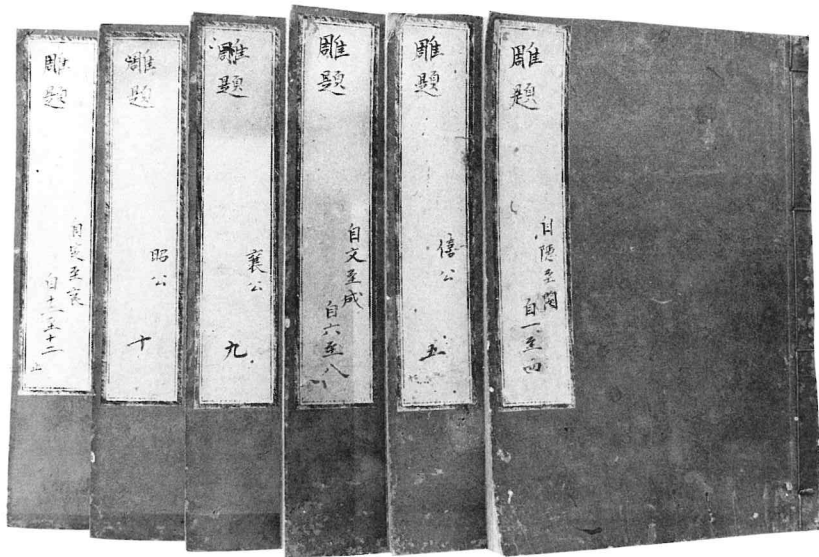 雕題
自隠至閔
自一至四
雕題
僖公
五
雕題
自文至成
自六至八
雕題
襄公
九
雕題
昭公
十
雕題
自定至哀
自十一至十二
止